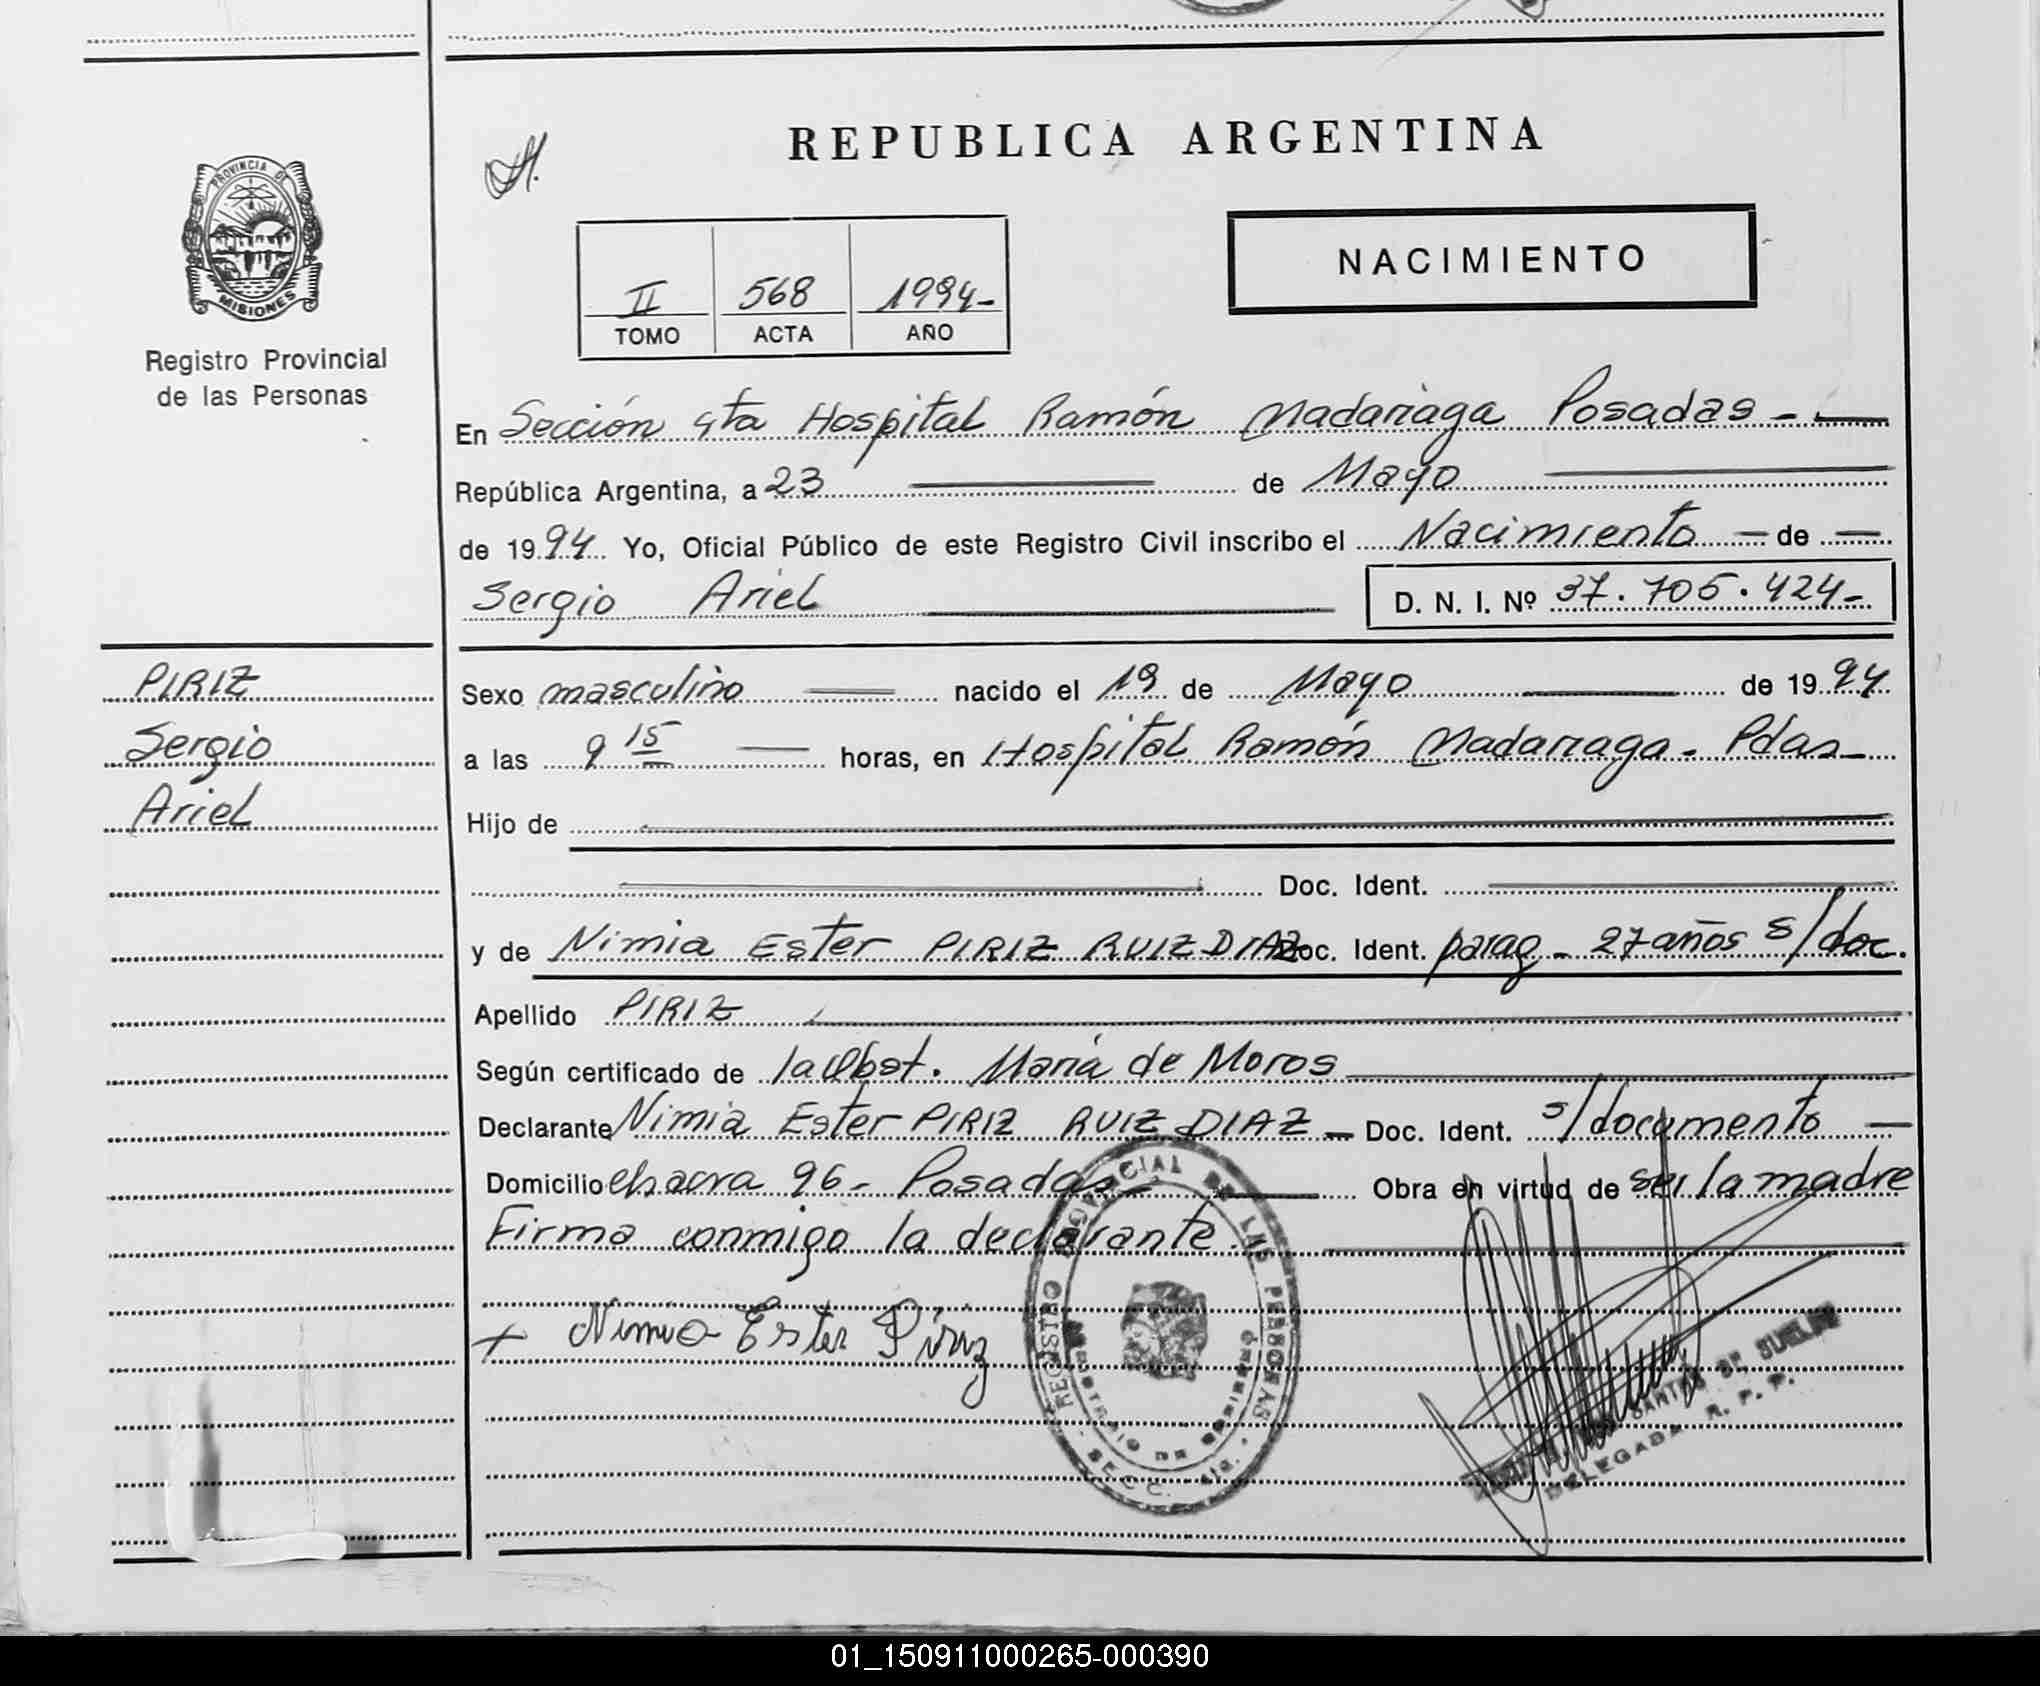 REPUBLICA ARGENTINA
PROVINCIA DE
MISIONES
Registro Provincial
de las Personas
NACIMIENTO
II 568 1994-
TOMO ACTA AÑO
En Sección 4ta Hospital Ramón Madariaga Posadas -
República Argentina, a 23 de Mayo
de 1994 Yo, Oficial Público de este Registro Civil inscribo el Nacimiento de
Sergio Ariel D. N. I. Nº 37.705.424-
PIRIZ
Sergio
Ariel
Sexo masculino nacido el 19 de Mayo de 1994
a las 9 15 horas, en Hospital Ramón Madariaga - Pdas-
Hijo de
Doc. Ident.
y de Nimia Ester PIRIZ RUIZ DIAZ Doc. Ident. parag - 27 años s/doc.
Apellido PIRIZ
Según certificado de la Obst. María de Moros
Declarante Nimia Ester PIRIZ RUIZ DIAZ - Doc. Ident. s/documento
Domicilio chacra 96 - Posadas - Obra en virtud de ser la madre
Firma conmigo la declarante.
+ Nimia Ester Píriz
REGISTRO PROVINCIAL DE LAS PERSONAS
SECC. 4ta.
DELEGADA R. P. P.
01_150911000265-000390